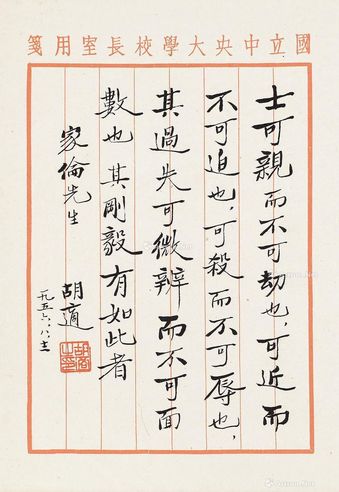 國立中央大學校長室用箋
士可親而不可劫也,可近而
不可迫也,可殺而不可辱也,
其過失可微辨而不可面
數也 其剛毅有如此者
家倫先生
胡適
一九五六、八、
胡適之印